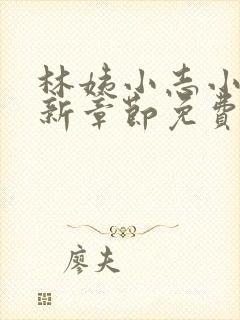 林姨小志小
新章節免費
廖夫